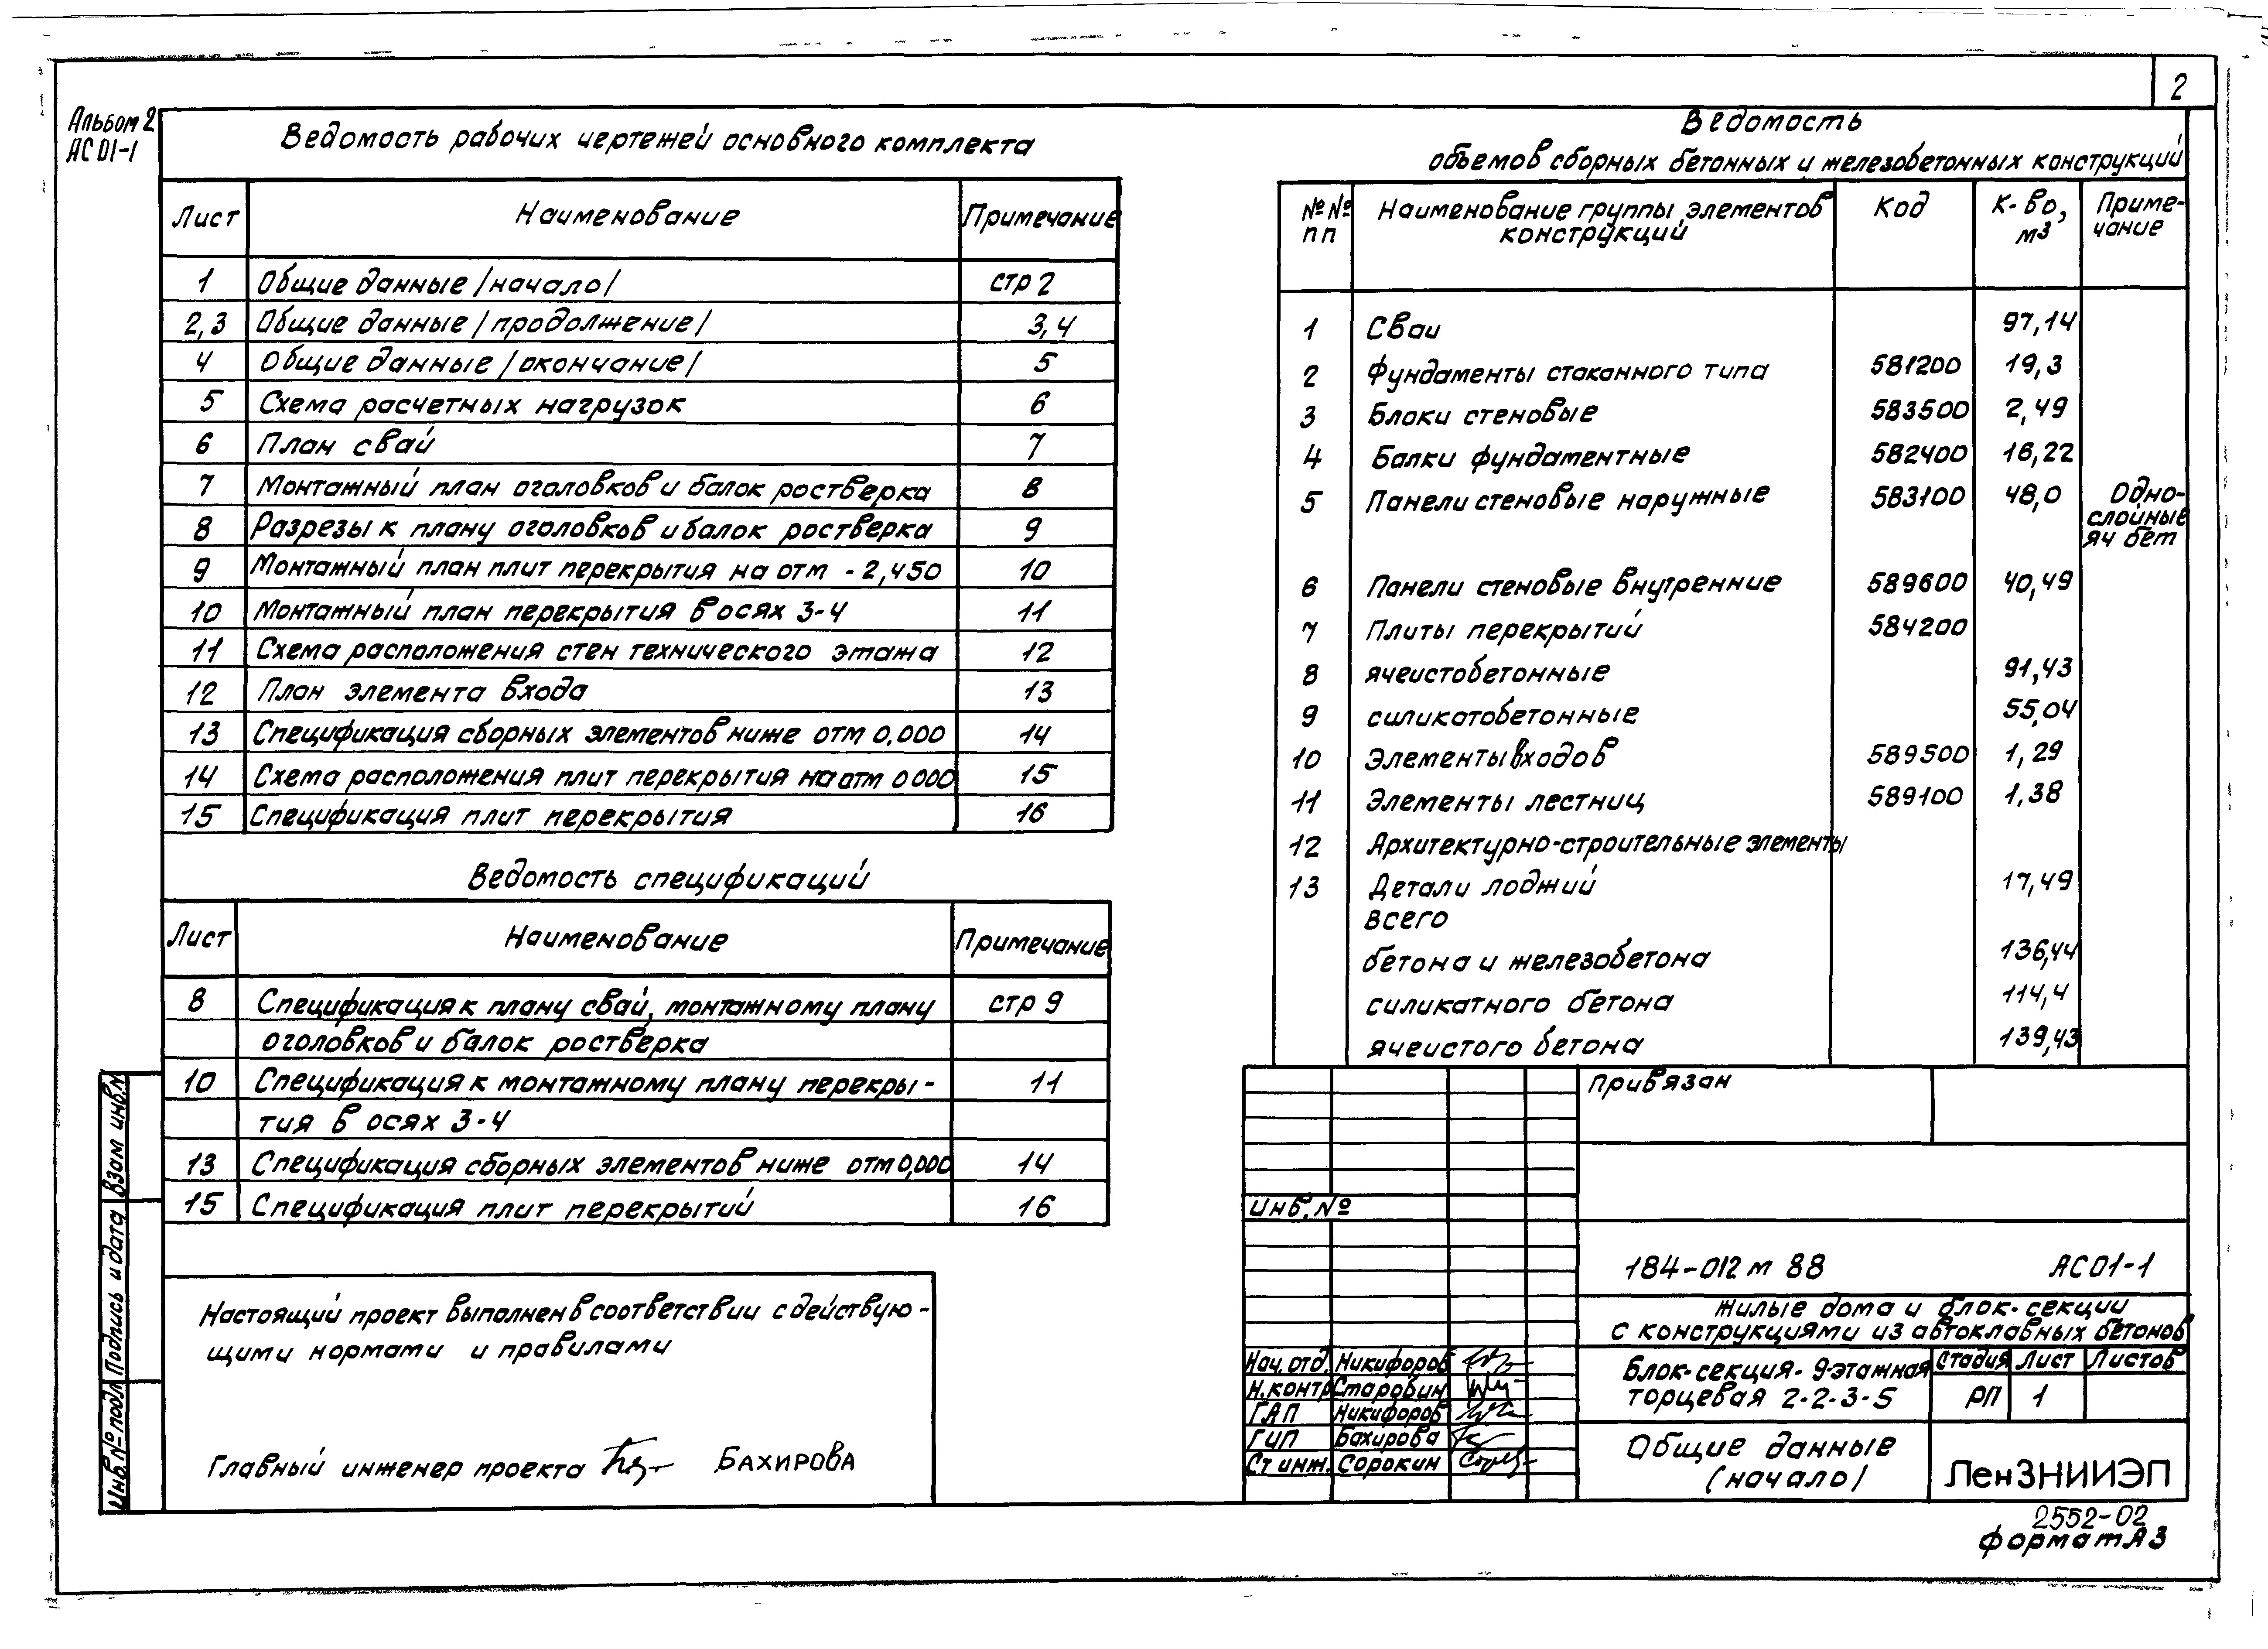 2
Альбом 2
АС 01-1
Ведомость рабочих чертежей основного комплекта
Лист Наименование Примечание
1 Общие данные /начало/ стр 2
2,3 Общие данные /продолжение/ 3,4
4 Общие данные /окончание/ 5
5 Схема расчетных нагрузок 6
6 План свай 7
7 Монтажный план оголовков и балок ростверка 8
8 Разрезы к плану оголовков и балок ростверка 9
9 Монтажный план плит перекрытия на отм -2,450 10
10 Монтажный план перекрытия в осях 3-4 11
11 Схема расположения стен технического этажа 12
12 План элемента входа 13
13 Спецификация сборных элементов ниже отм 0,000 14
14 Схема расположения плит перекрытия на отм 0 000 15
15 Спецификация плит перекрытия 16
Ведомость спецификаций
Лист Наименование Примечание
8 Спецификация к плану свай, монтажному плану стр 9
оголовков и балок ростверка
10 Спецификация к монтажному плану перекры- 11
тия в осях 3-4
13 Спецификация сборных элементов ниже отм 0,000 14
15 Спецификация плит перекрытий 16
Настоящий проект выполнен в соответствии с действую-
щими нормами и правилами
Главный инженер проекта БАХИРОВА
Взам инв№
Подпись и дата
Инв.№ подл
Ведомость
объемов сборных бетонных и железобетонных конструкций
№№ Наименование группы элементов Код К-во, Приме-
пп конструкций м³ чание
1 Сваи 97,14
2 Фундаменты стаканного типа 581200 19,3
3 Блоки стеновые 583500 2,49
4 Балки фундаментные 582400 16,22
5 Панели стеновые наружные 583100 48,0 Одно-
слойные
яч бет
6 Панели стеновые внутренние 589600 40,49
7 Плиты перекрытий 584200
8 ячеистобетонные 91,43
9 силикатобетонные 55,04
10 Элементы входов 589500 1,29
11 Элементы лестниц 589100 1,38
12 Архитектурно-строительные элементы
13 Детали лоджий 17,49
всего
бетона и железобетона 136,44
силикатного бетона 114,4
ячеистого бетона 139,43
Привязан
Инв.№
184-012 м 88 АС01-1
Жилые дома и блок-секции
с конструкциями из автоклавных бетонов
Нач.отд. Никифоров
Н.контр Старобин
ГАП Никифоров
ГИП Бахирова
Ст инж. Сорокин
Блок-секция- 9-этажная
торцевая 2-2-3-5
Стадия Лист Листов
РП 1
Общие данные
(начало)
ЛенЗНИИЭП
2552-02
Формат А3